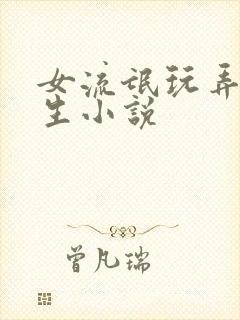 女流氓玩弄
生小説
曾凡瑞